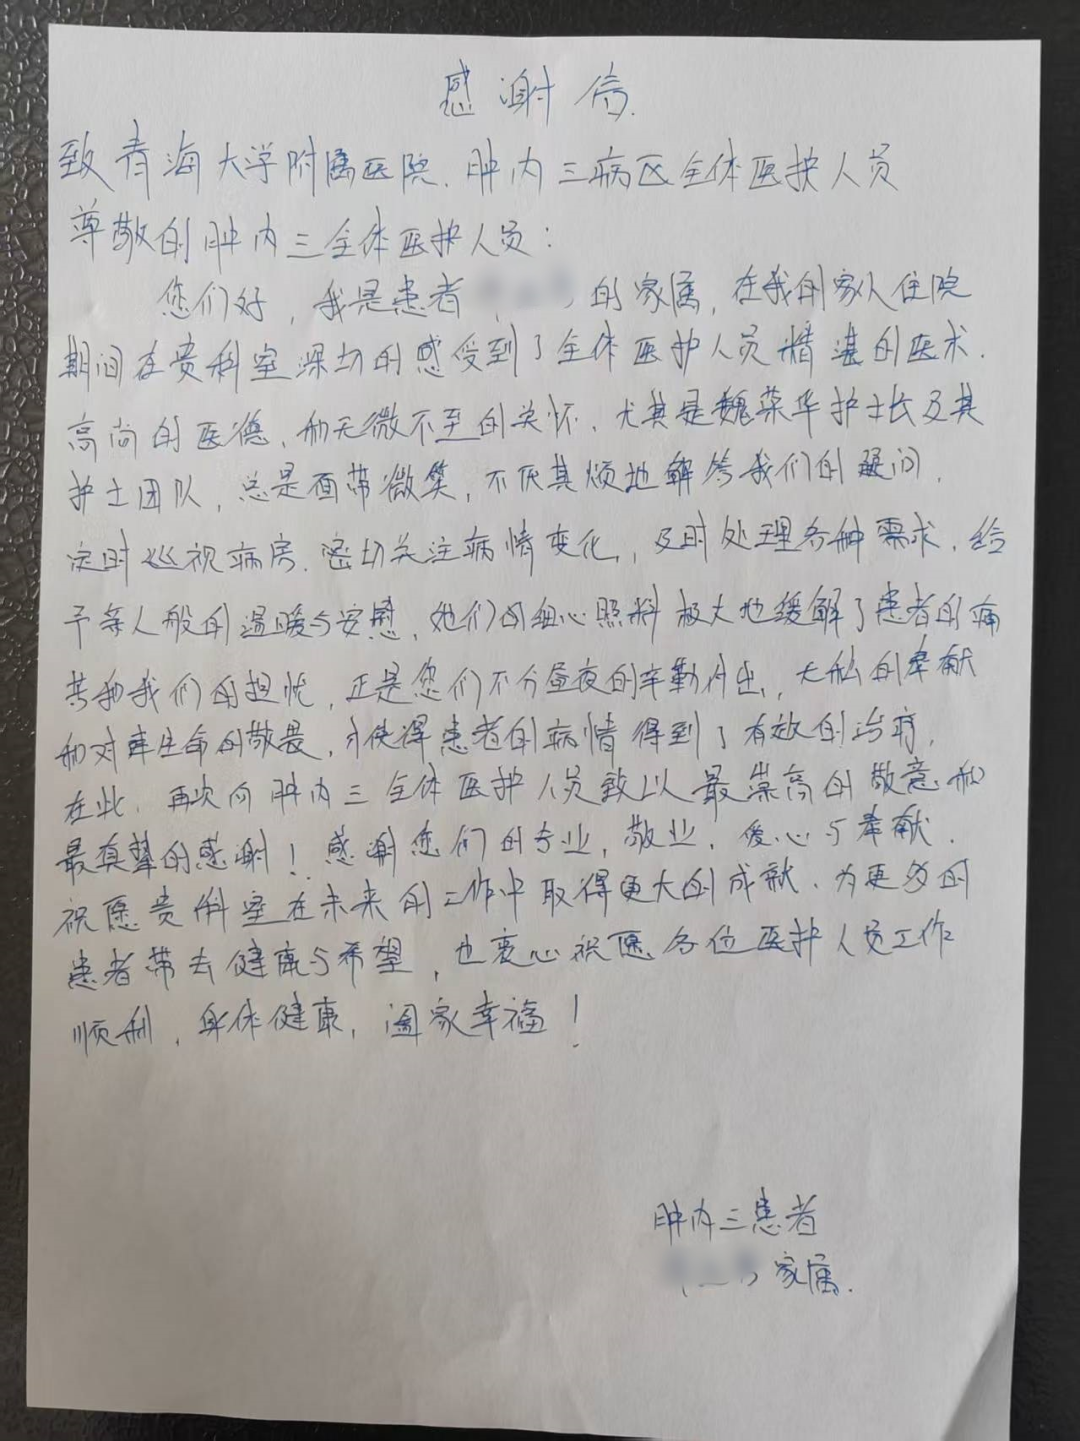 感谢信.
致青海大学附属医院、肿内三病区全体医护人员
尊敬的肿内三全体医护人员：
您们好，我是患者 的家属，在我的家人住院
期间在贵科室深切的感受到了全体医护人员精湛的医术、
高尚的医德、和无微不至的关怀、尤其是魏荣华护士长及其
护士团队，总是面带微笑，不厌其烦地解答我们的疑问，
定时巡视病房、密切关注病情变化，及时处理各种需求，给
予亲人般的温暖与安慰，她们的细心照料极大地缓解了患者的痛
苦和我们的担忧，正是您们不分昼夜的辛勤付出，无私的奉献
和对生命的敬畏，才使得患者的病情得到了有效的治疗，
在此，再次向肿内三全体医护人员致以最崇高的敬意和
最真挚的感谢！感谢您们的专业，敬业，爱心与奉献．
祝愿贵科室在未来的工作中取得更大的成就、为更多的
患者带去健康与希望，也衷心祝愿各位医护人员工作
顺利，身体健康，阖家幸福！
肿内三患者
家属.